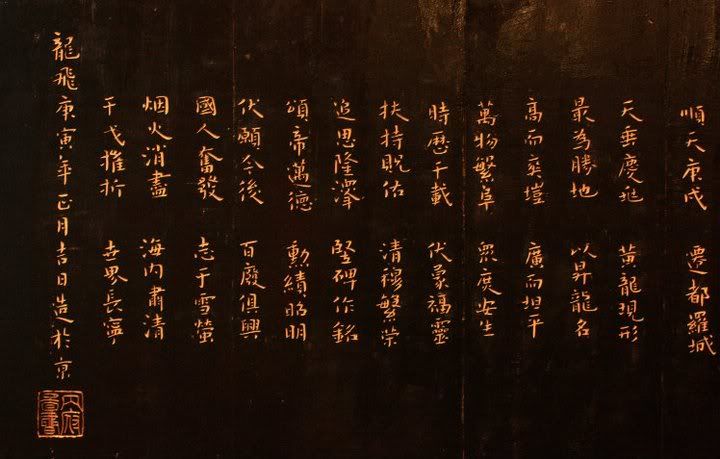 順天庚戌 遷都羅城
天垂慶兆 黃龍現形
最為勝地 以昇龍名
高而爽塏 廣而坦平
萬物繁阜 眾庶安生
時歷千載 伏蒙福靈
扶持貺佑 清穆繁榮
追思隆澤 堅碑作銘
頌帝邁德 勳績昭明
伏願今後 百廢俱興
國人奮發 志于雪螢
烟火消盡 海內肅清
干戈摧折 世界長寧
龍飛庚寅年正月吉日造於京